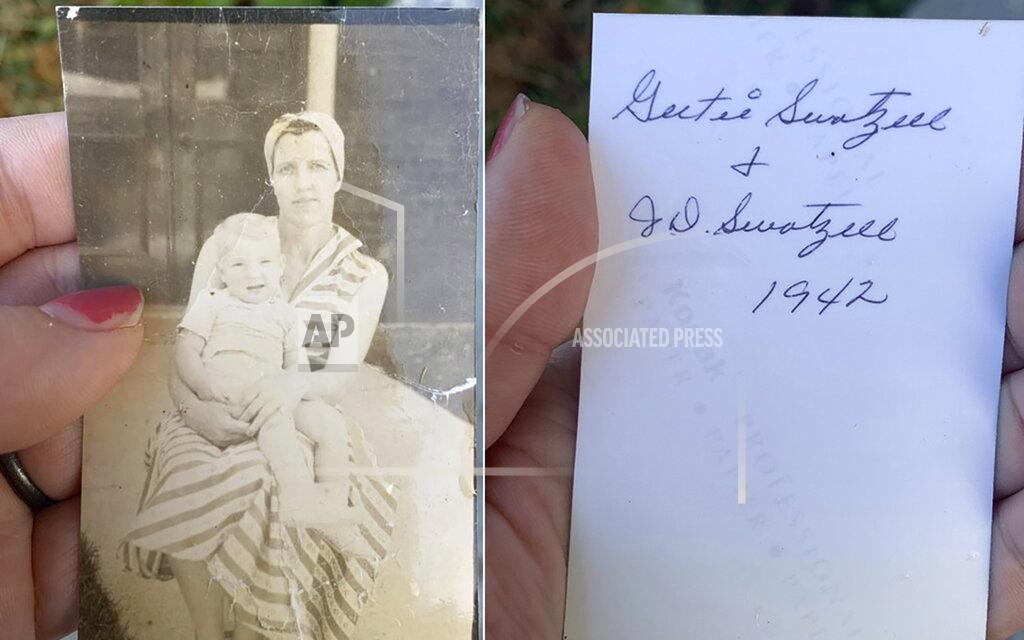 AP
Gertie Swatzell
&
J.D. Swatzell
1942
ASSOCIATED PRESS
Kodak
PROFESSIONAL
PAPER